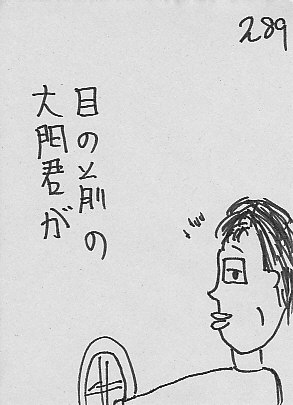 289
目の前の
大門君が